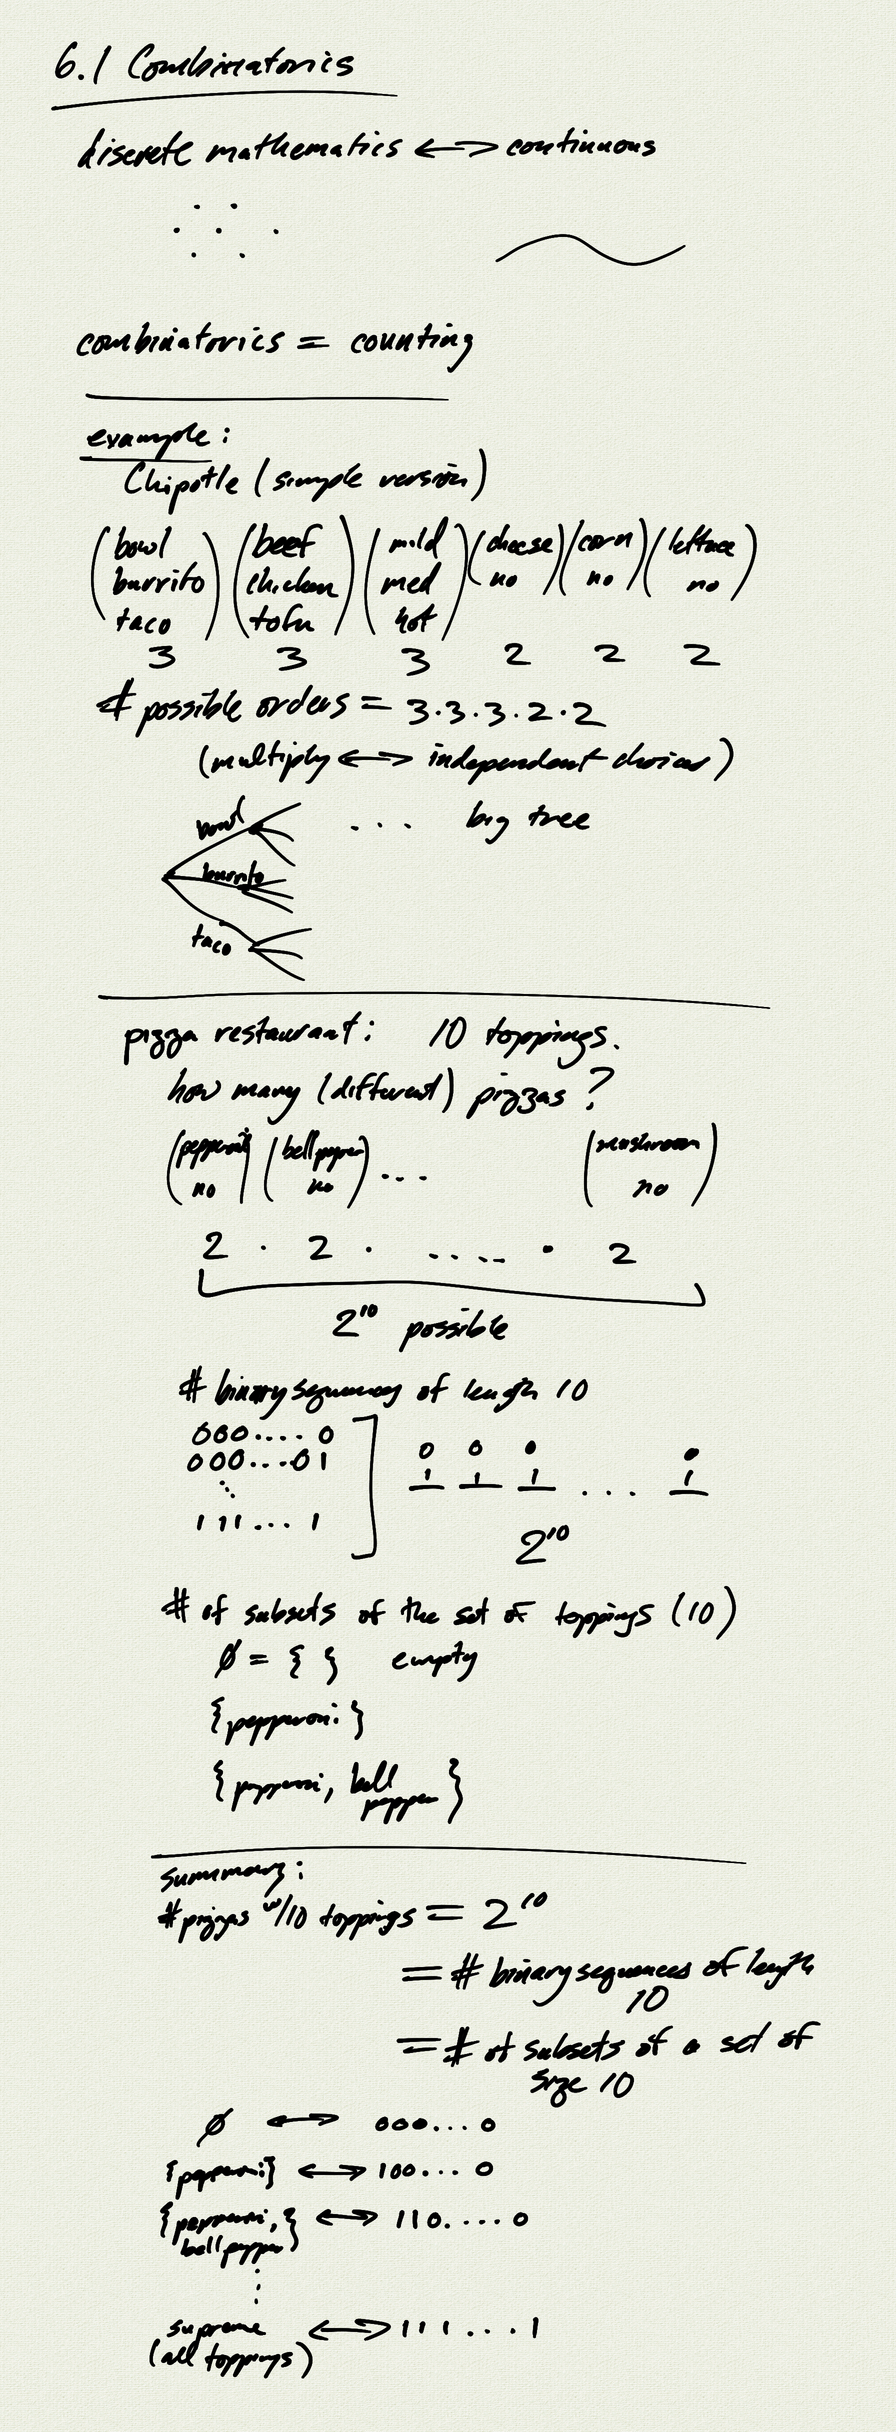 6.1 Combinatorics
discrete mathematics ⟷ continuous
combinatorics = counting
example:
Chipotle (simple version)
(bowl burrito taco) (beef chicken tofu) (mild med hot) (cheese no) (corn no) (lettuce no)
3 3 3 2 2 2
# possible orders = 3·3·3·2·2
(multiply ⟷ independent choices)
bowl ... big tree
burrito
taco
pizza restaurant: 10 toppings.
how many (different) pizzas?
(pepperoni no) (bell pepper no) ... (mushroom no)
2 · 2 · ..... · 2
2^10 possible
# binary sequences of length 10
000.... 0
000...01
⋮
111... 1
0 0 0 0
1 1 1 ... 1
2^10
# of subsets of the set of toppings (10)
∅ = { } empty
{pepperoni}
{pepperoni, bell pepper}
summary:
# pizzas w/10 toppings = 2^10
= # binary sequences of length
10
= # of subsets of a set of
size 10
∅ ⟷ 000... 0
{pepperoni} ⟷ 100... 0
{pepperoni, bell pepper} ⟷ 110.... 0
⋮
supreme ⟷ 111...1
(all toppings)